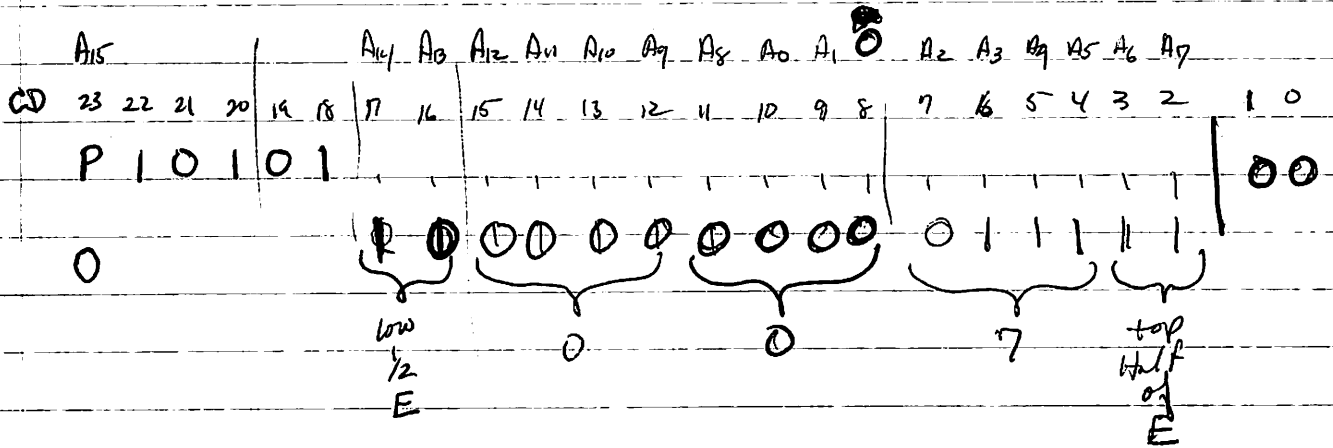 A15 A14 A13 A12 A11 A10 A9 A8 A0 A1 0 A2 A3 A4 A5 A6 A7
CD 23 22 21 20 19 18 17 16 15 14 13 12 11 10 9 8 7 6 5 4 3 2 1 0
P 1 0 1 0 1 0 0
0 1 0 0 0 0 0 0 0 0 0 0 1 1 1 1 1
low 1/2 E 0 0 7 top Half of E